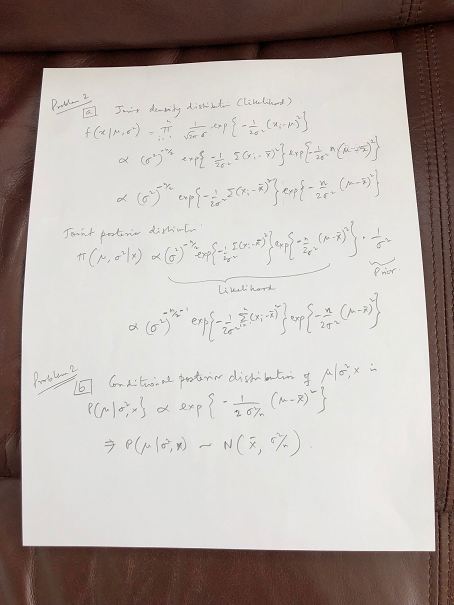 Problem 2
a Joint density distribution (Likelihood)
f(x|μ,σ²) = π 1/√2π σ exp{-1/2σ² (xᵢ-μ)²}
∝ (σ²)^-n/2 exp{-1/2σ² Σ(xᵢ-x̄)²} exp{-1/2σ² n(μ-x̄)²}
∝ (σ²)^-n/2 exp{-1/2σ² Σ(xᵢ-x̄)²} exp{-n/2σ² (μ-x̄)²}
Joint posterior distribution
π(μ,σ²|x) ∝ (σ²)^-n/2 exp{-1/2σ² Σ(xᵢ-x̄)²} exp{-n/2σ² (μ-x̄)²} · 1/σ²
Likelihood
Prior
∝ (σ²)^-n/2-1 exp{-1/2σ² Σ(xᵢ-x̄)²} exp{-n/2σ² (μ-x̄)²}
Problem 2
b Conditional posterior distribution of μ|σ²,x is
P(μ|σ²,x) ∝ exp{-1/2σ²/n (μ-x̄)²}
⇒ P(μ|σ²,x) ~ N(x̄, σ²/n).